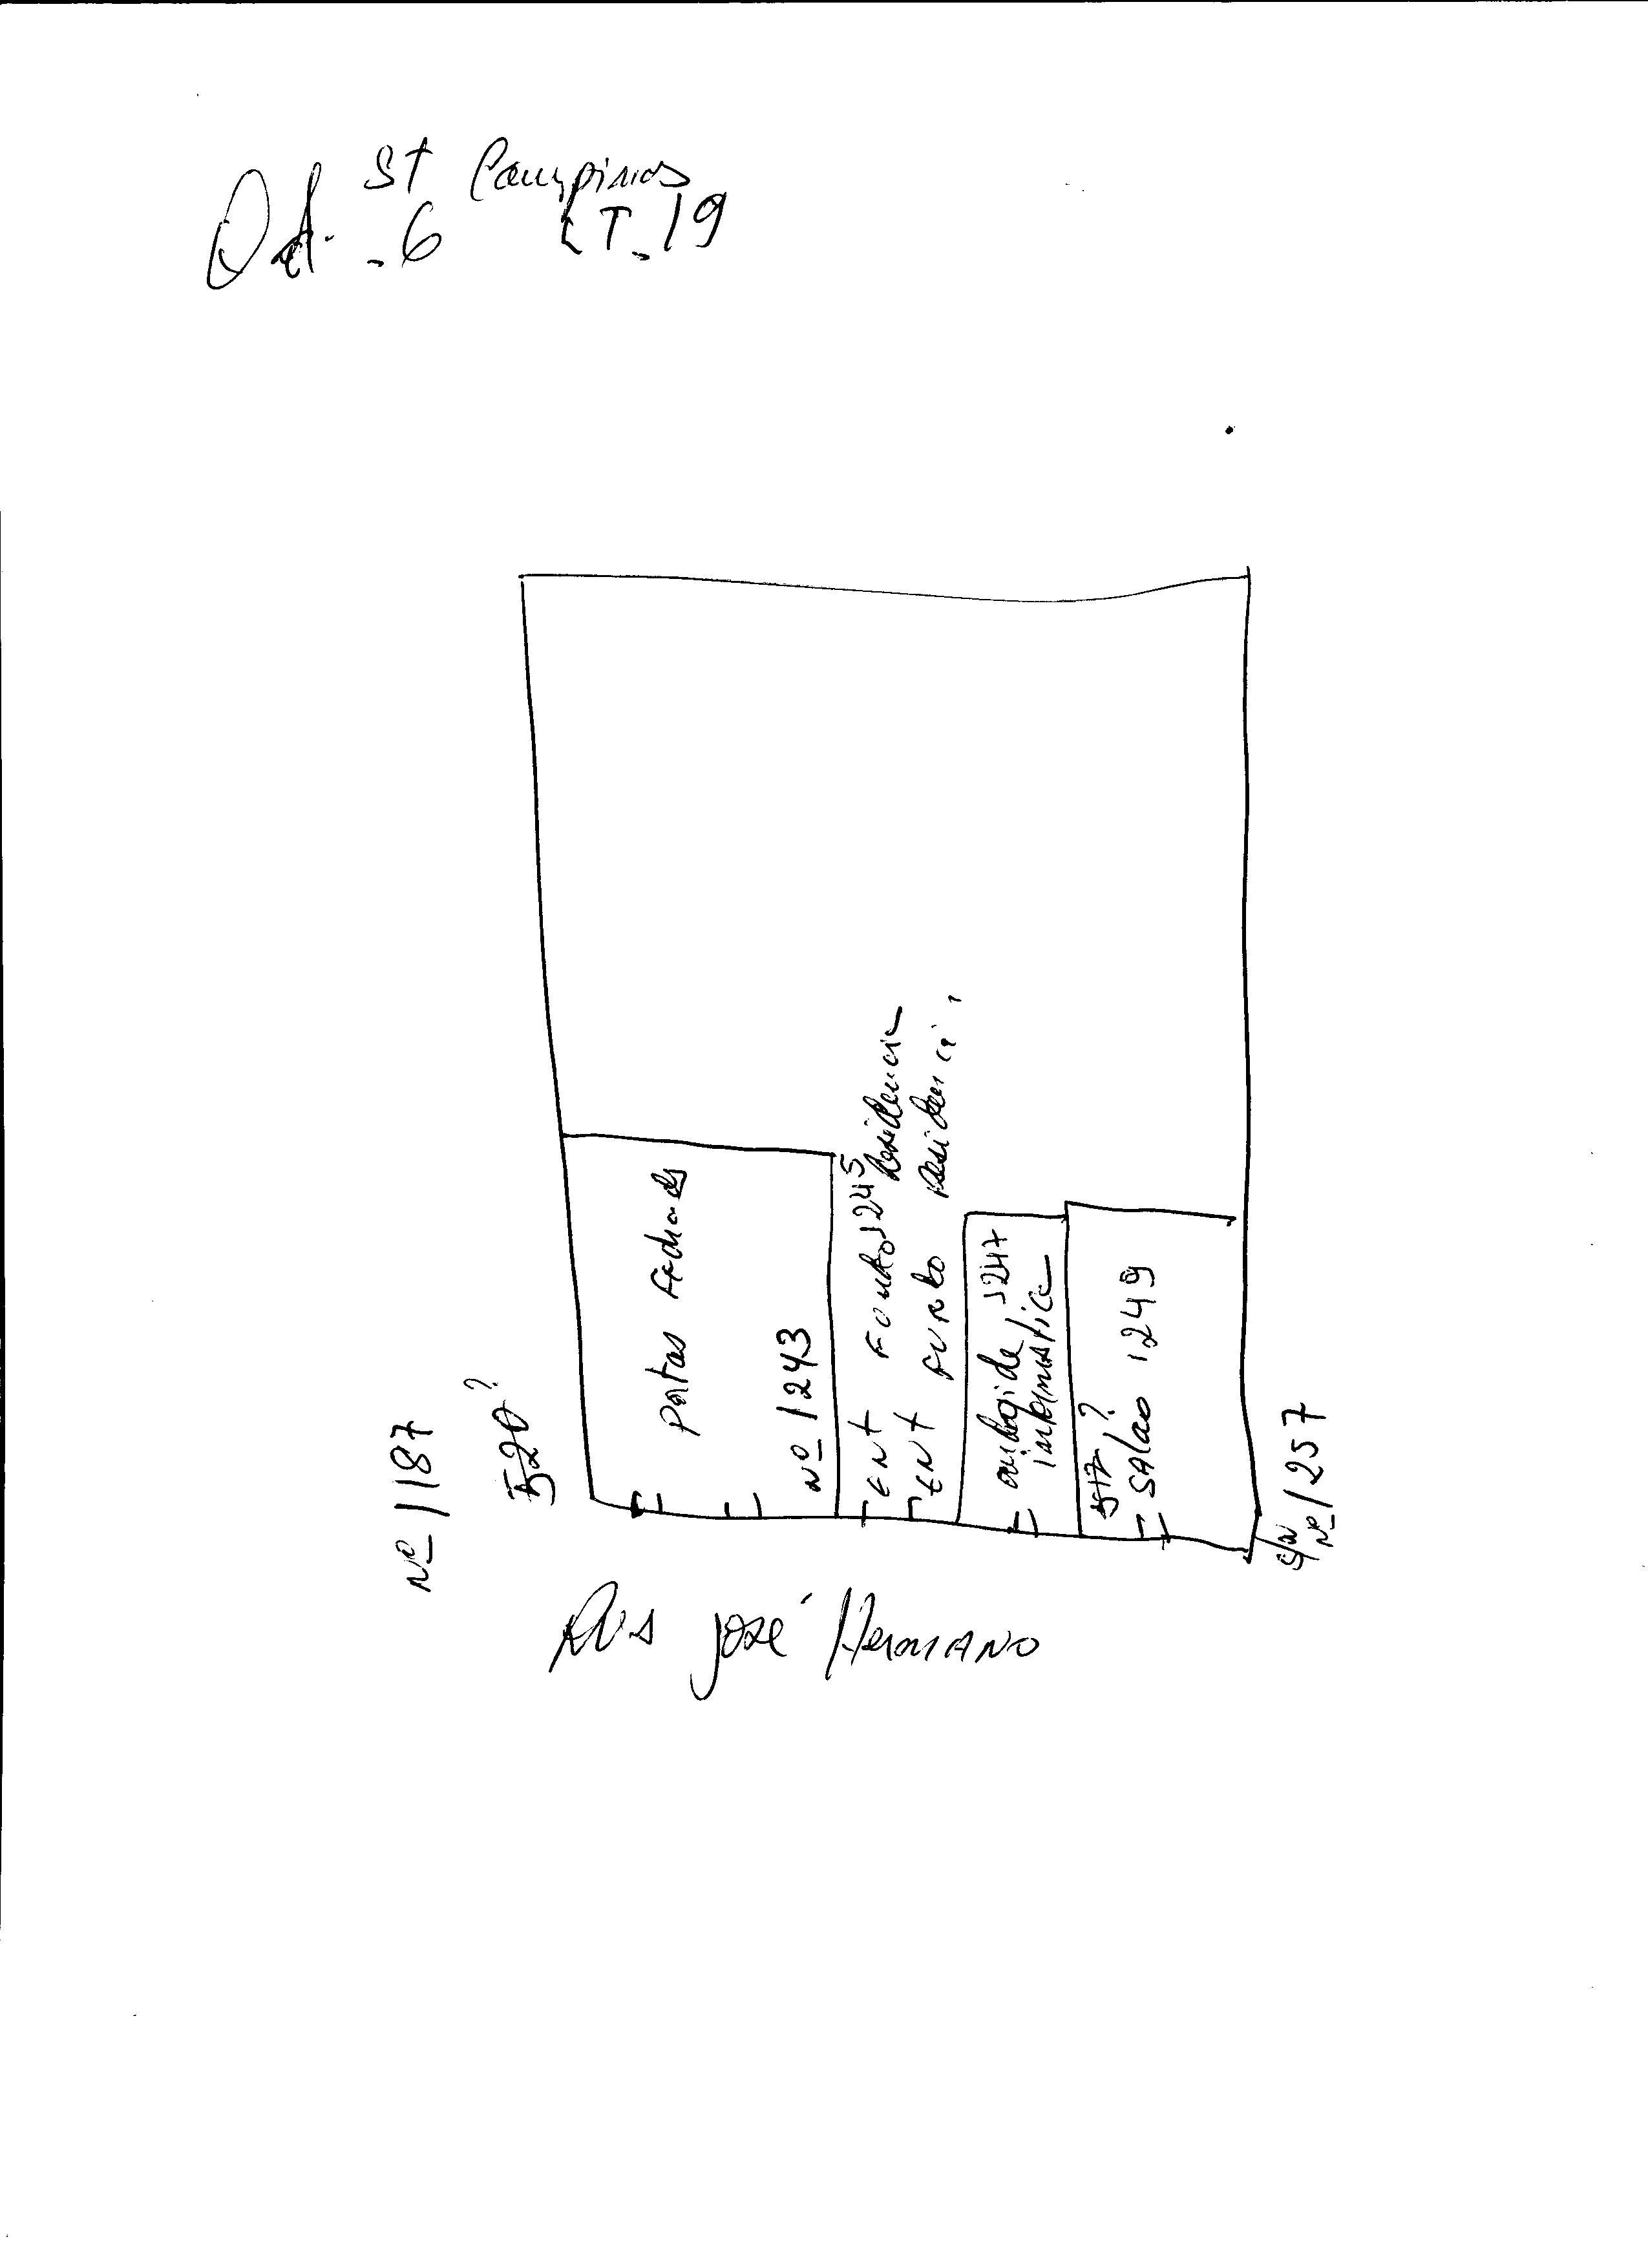 St Campinas
Qd. - 6 LT - 19
Nº 1187
520?
portas fechadas
Nº 1243
ENT Fundo 1245 Residencia
ENT Fundo
1247
informatica
517?
salao 1249
S/N
Nº 1257
Rua José Hermano